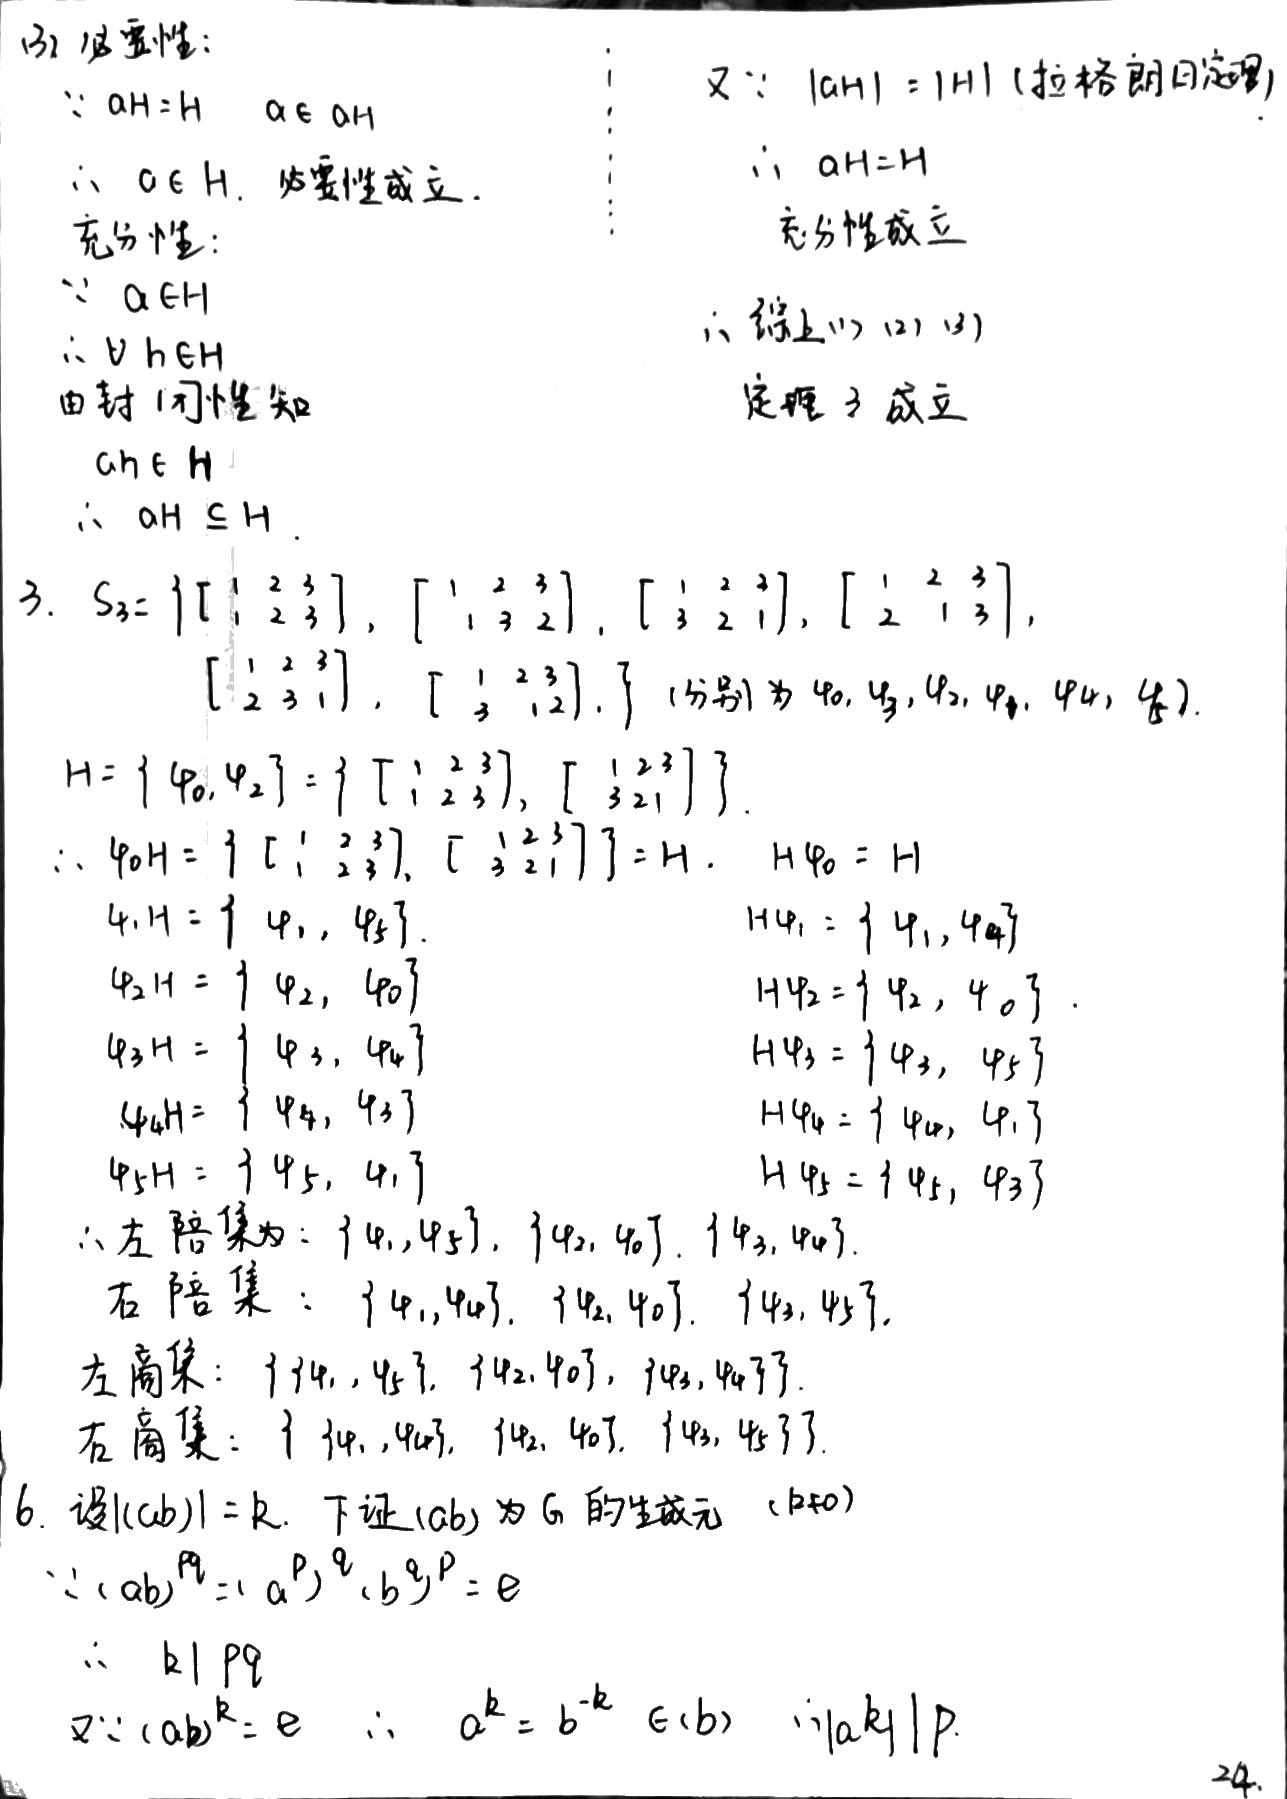 (3) 必要性:
∵ aH=H a∈aH
∴ a∈H. 必要性成立.
充分性:
∵ a∈H
∴ ∀h∈H
由封闭性知
ah∈H
∴ aH⊆H.
又∵ |aH|=|H| (拉格朗日定理).
∴ aH=H
充分性成立
∴ 综上(1) (2) (3)
定理3成立
3. S₃={[1 2 3; 1 2 3], [1 2 3; 1 3 2], [1 2 3; 3 2 1], [1 2 3; 2 1 3],
[1 2 3; 2 3 1], [1 2 3; 3 1 2].} (分别为 φ₀, φ₃, φ₂, φ₁, φ₄, φ₅).
H={φ₀, φ₂}={[1 2 3; 1 2 3], [1 2 3; 3 2 1]}.
∴ φ₀H={[1 2 3; 1 2 3], [1 2 3; 3 2 1]}=H. Hφ₀=H
φ₁H={φ₁, φ₅}. Hφ₁={φ₁, φ₄}
φ₂H={φ₂, φ₀} Hφ₂={φ₂, φ₀}.
φ₃H={φ₃, φ₄} Hφ₃={φ₃, φ₅}
φ₄H={φ₄, φ₃} Hφ₄={φ₄, φ₁}
φ₅H={φ₅, φ₁} Hφ₅={φ₅, φ₃}
∴左陪集为: {φ₁, φ₅}, {φ₂, φ₀}. {φ₃, φ₄}.
右陪集: {φ₁, φ₄}. {φ₂, φ₀}. {φ₃, φ₅}.
左商集: {{φ₁, φ₅}, {φ₂, φ₀}, {φ₃, φ₄}}.
右商集: {{φ₁, φ₄}, {φ₂, φ₀}. {φ₃, φ₅}}.
6. 设|(ab)|=k. 下证(ab)为G的生成元 (k≠0)
∵(ab)^pq=(a^p)^q(b^q)^p=e
∴ k|pq
又∵(ab)^k=e ∴ a^k=b^-k ∈(b) ∴|a^k||p.
24.